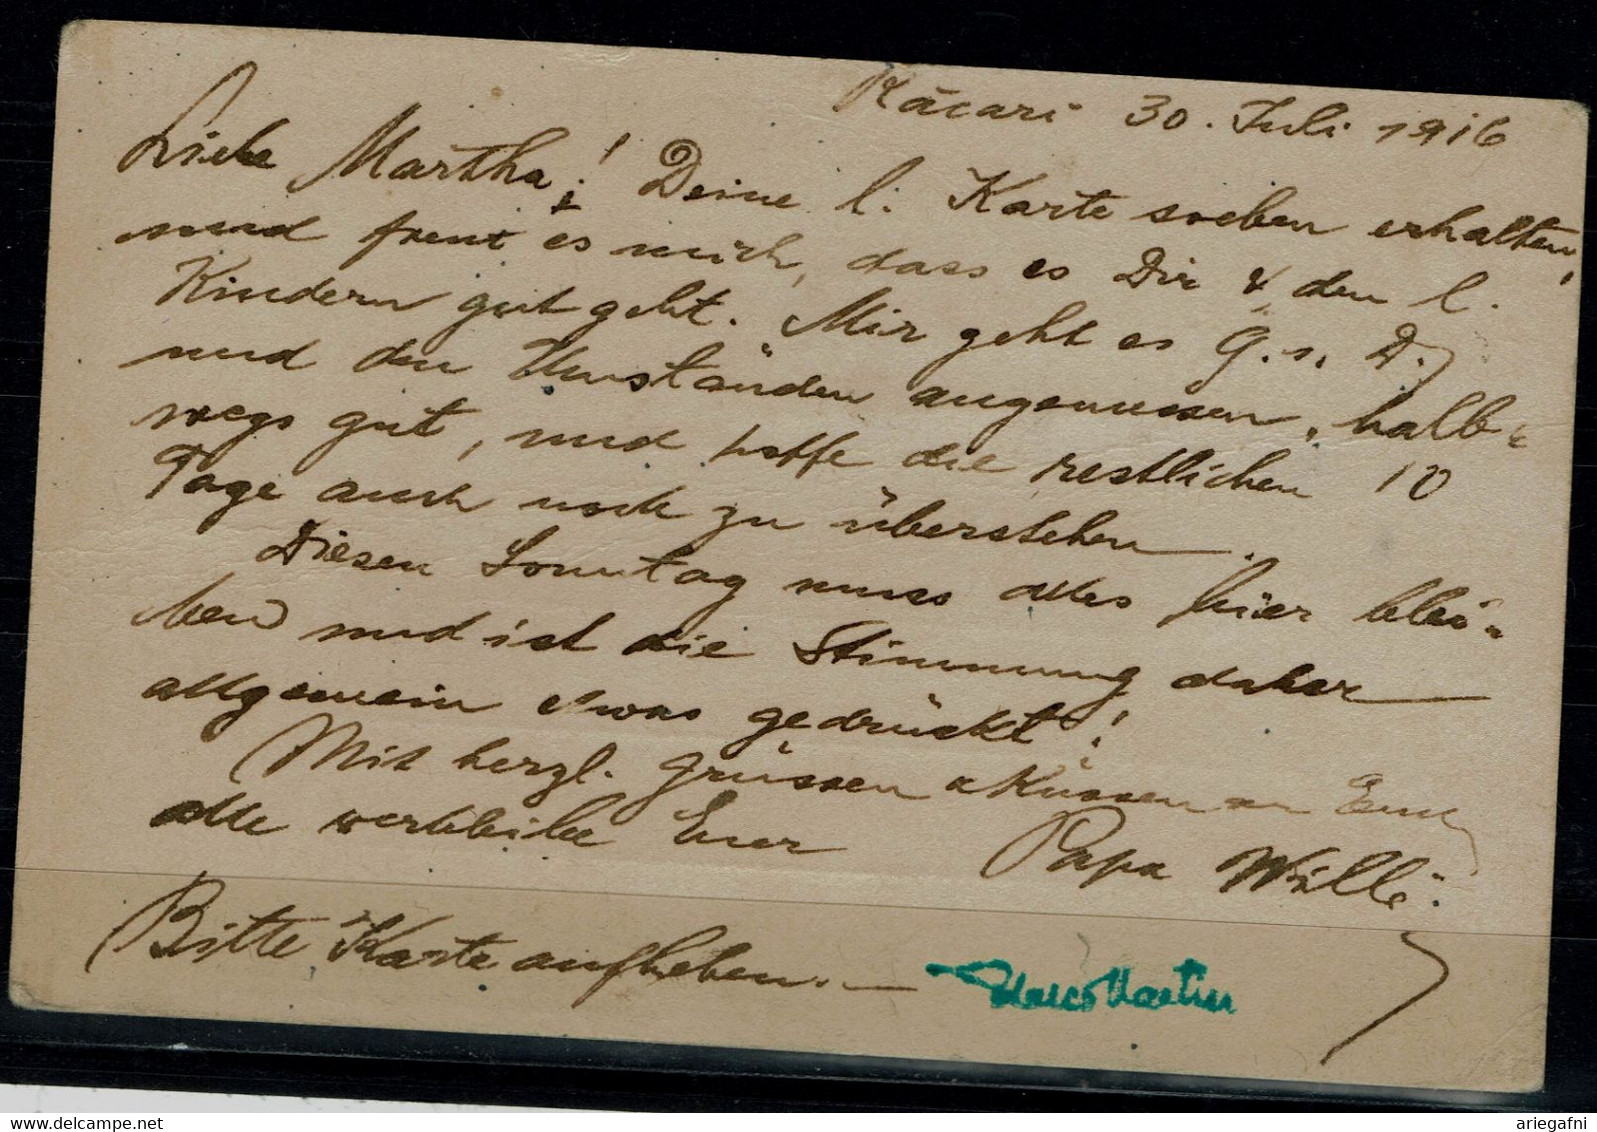 Răcari 30. Juli 1916
Liebe Martha! Deine l. Karte soeben erhalten,
und freut es mich, dass es Dir & den l.
Kindern gut geht. Mir geht es G. s. D.,
und den Umständen angemessen, halb=
wegs gut, und hoffe die restlichen 10
Tage auch noch zu überstehen.
Diesen Sonntag muss alles hier blei=
ben und ist die Stimmung daher
allgemein etwas gedrückt!
Mit herzl. Grüssen & Küssen an Euch
alle verbleibe Euer Papa Willi.
Bitte Karte aufheben. —
delcampe.net
ariegafni